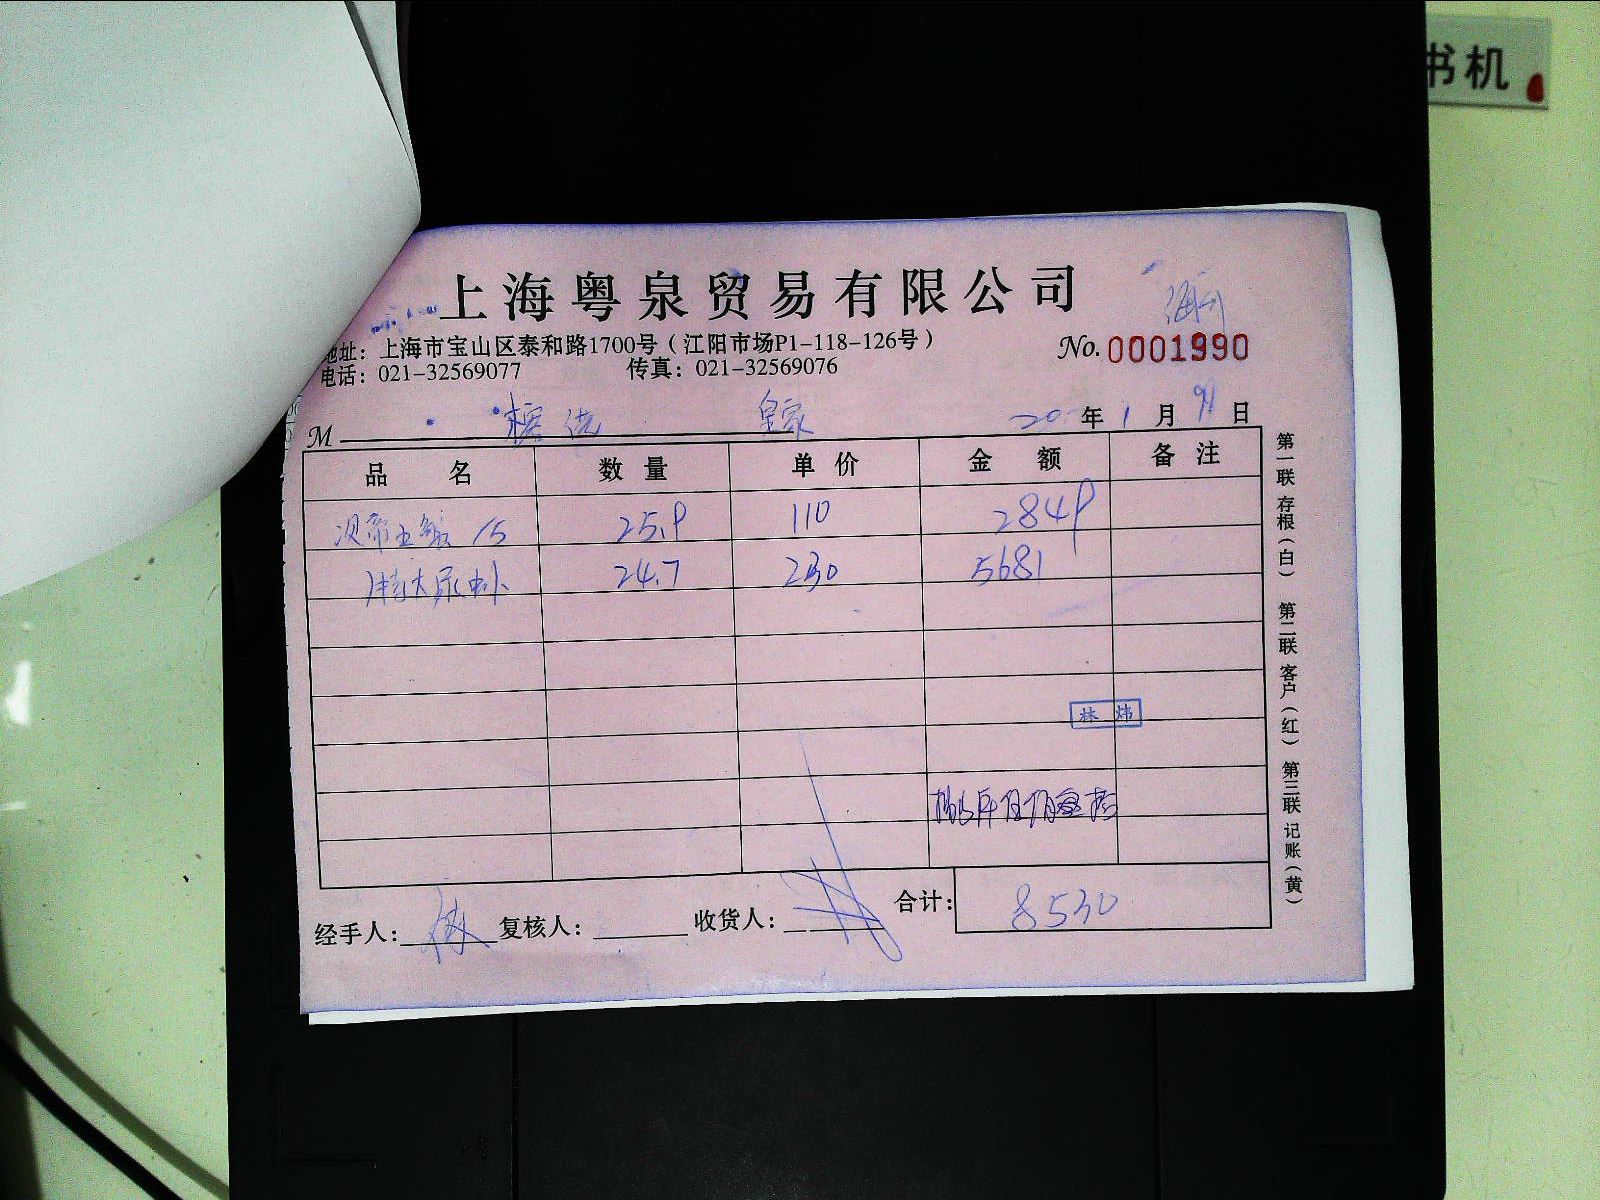 书机
上海粤泉贸易有限公司
地址：上海市宝山区泰和路1700号（江阳市场P1-118-126号）
No. 0001990
电话：021-32569077 传真：021-32569076
M 皇家 20 年 1 月 日
品名 数量 单价 金额 备注
次帝王鲜 15 25.9 110 2849
特大尿虾 24.7 230 5681
林 炜
经手人： 复核人： 收货人： 合计： 8530
第一联 存根（白） 第二联 客户（红） 第三联 记账（黄）